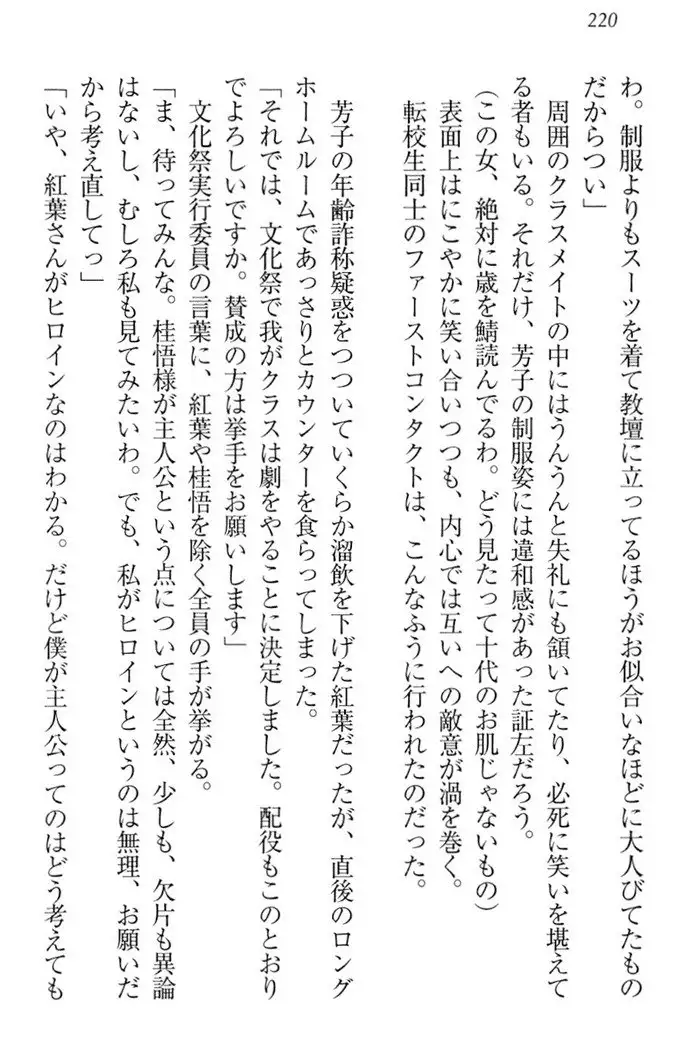 220
わ。制服よりもスーツを着て教壇に立ってるほうがお似合いなほどに大人びてたもの
だからつい」
周囲のクラスメイトの中にはうんうんと失礼にも頷いてたり、必死に笑いを堪えて
る者もいる。それだけ、芳子の制服姿には違和感があった証左だろう。
(この女、絶対に歳を鯖読んでるわ。どう見たって十代のお肌じゃないもの)
表面上はにこやかに笑い合いつつも、内心では互いへの敵意が渦を巻く。
転校生同士のファーストコンタクトは、こんなふうに行われたのだった。
芳子の年齢詐称疑惑をつついていくらか溜飲を下げた紅葉だったが、直後のロング
ホームルームであっさりとカウンターを食らってしまった。
「それでは、文化祭で我がクラスは劇をやることに決定しました。配役もこのとおり
でよろしいですか。賛成の方は挙手をお願いします」
文化祭実行委員の言葉に、紅葉や桂悟を除く全員の手が挙がる。
「ま、待ってみんな。桂悟様が主人公という点については全然、少しも、欠片も異論
はないし、むしろ私も見てみたいわ。でも、私がヒロインというのは無理、お願いだ
から考え直してっ」
「いや、紅葉さんがヒロインなのはわかる。だけど僕が主人公ってのはどう考えても